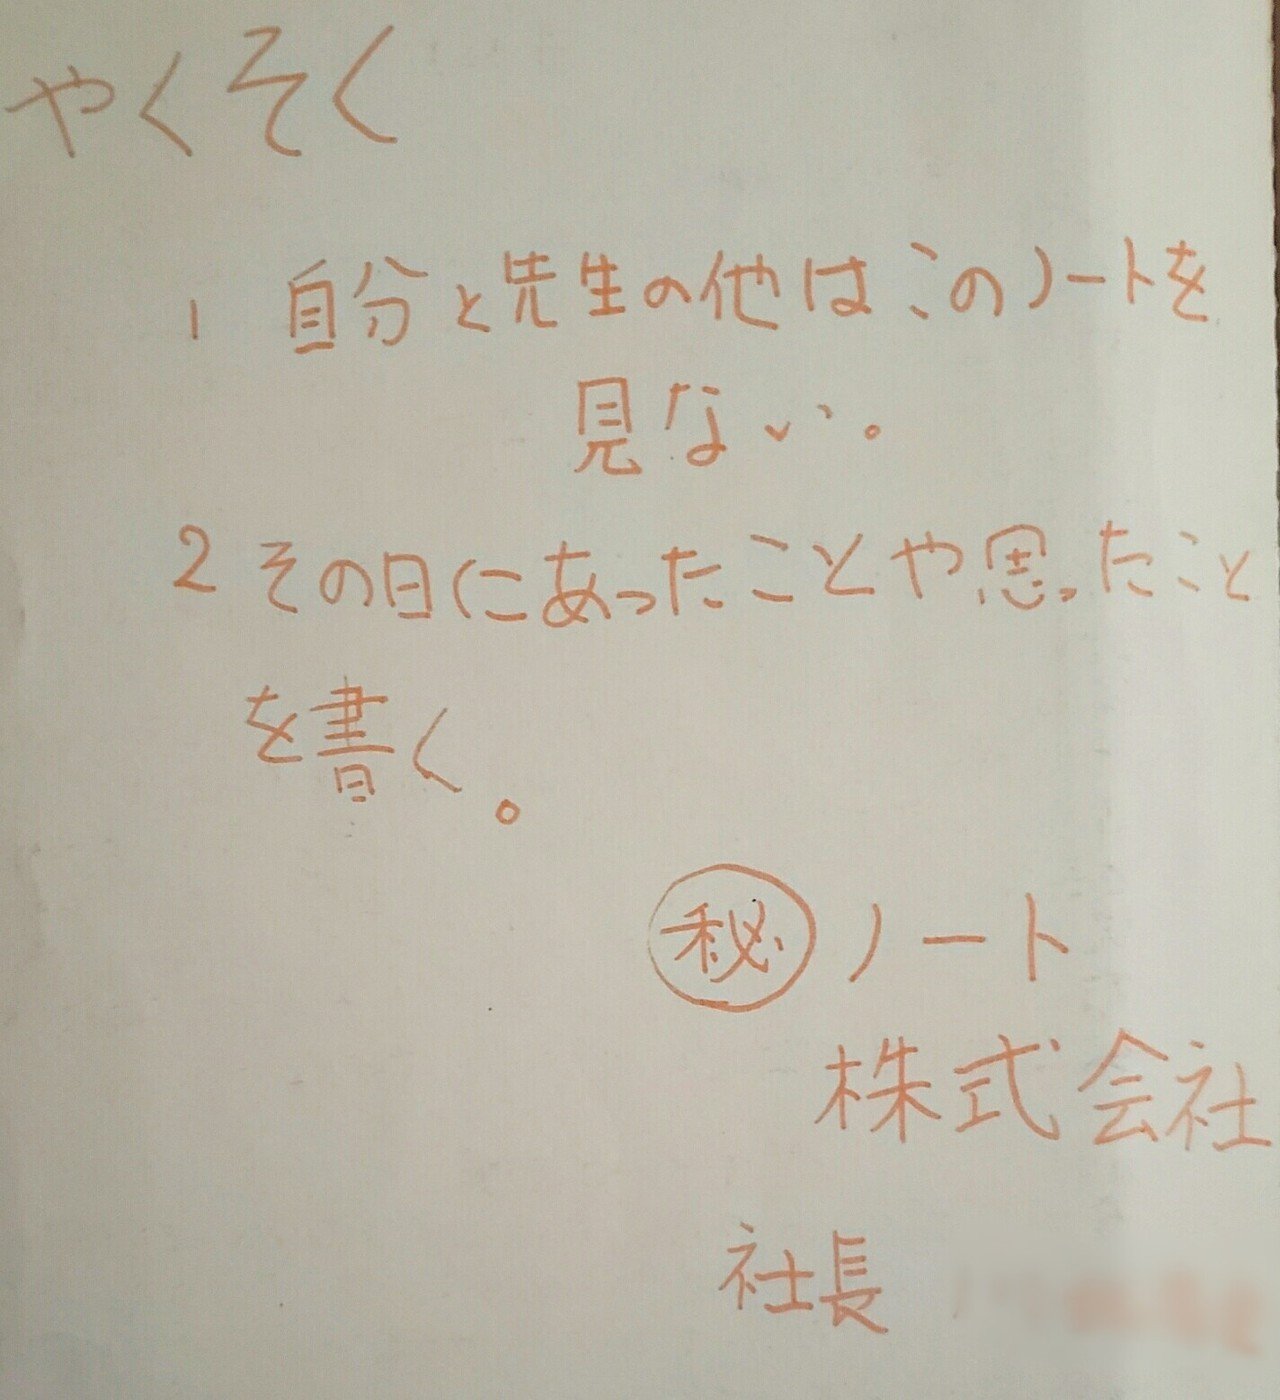 やくそく
1 自分と先生の他はこのノートを
見ない。
2 その日にあったことや思ったこと
を書く。
㊙ノート
株式会社
社長